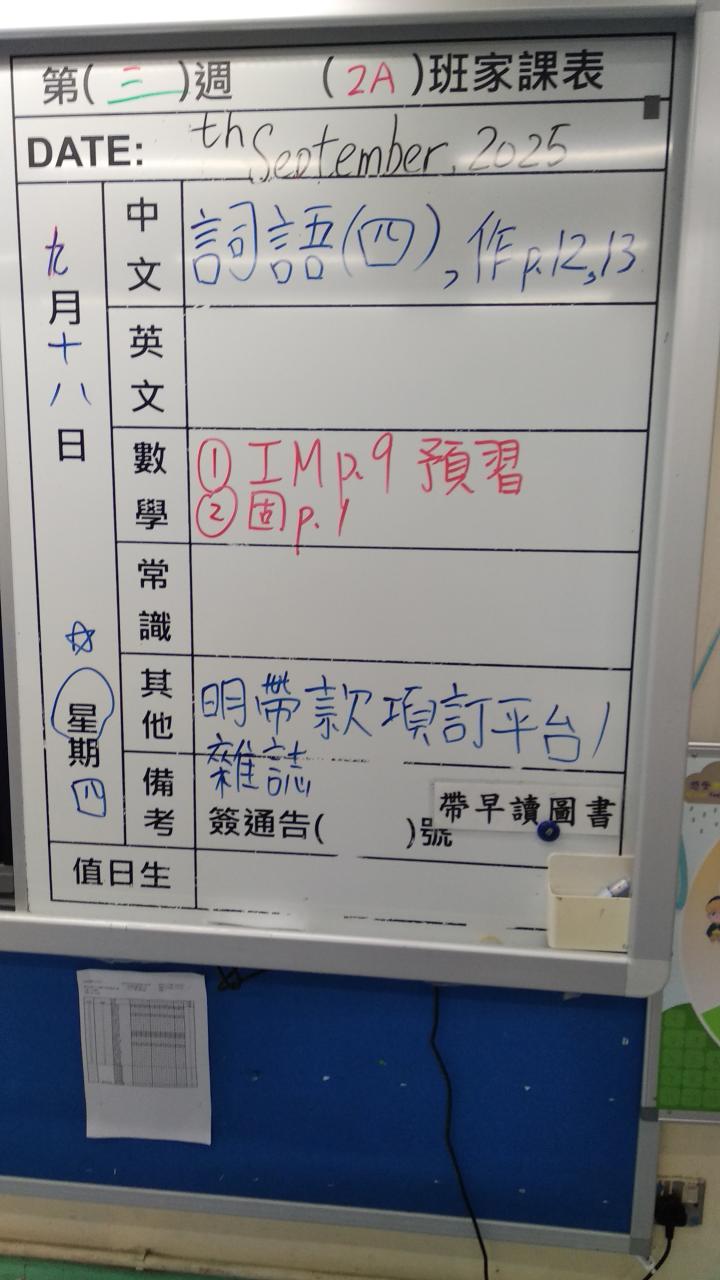 第(三)週 (2A)班家課表
DATE: th September, 2025
九月十八日
☆
星期四
中文
詞語(四),作p.12,13
英文
數學
① IM p.9 預習
② 固p.1
常識
其他
明帶款項訂平台/
雜誌
備考
簽通告( )號
帶早讀圖書
值日生